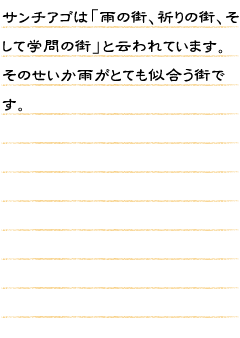 サンチアゴは「雨の街、祈りの街、そ
して学問の街」と云われています。
そのせいか雨がとても似合う街で
す。